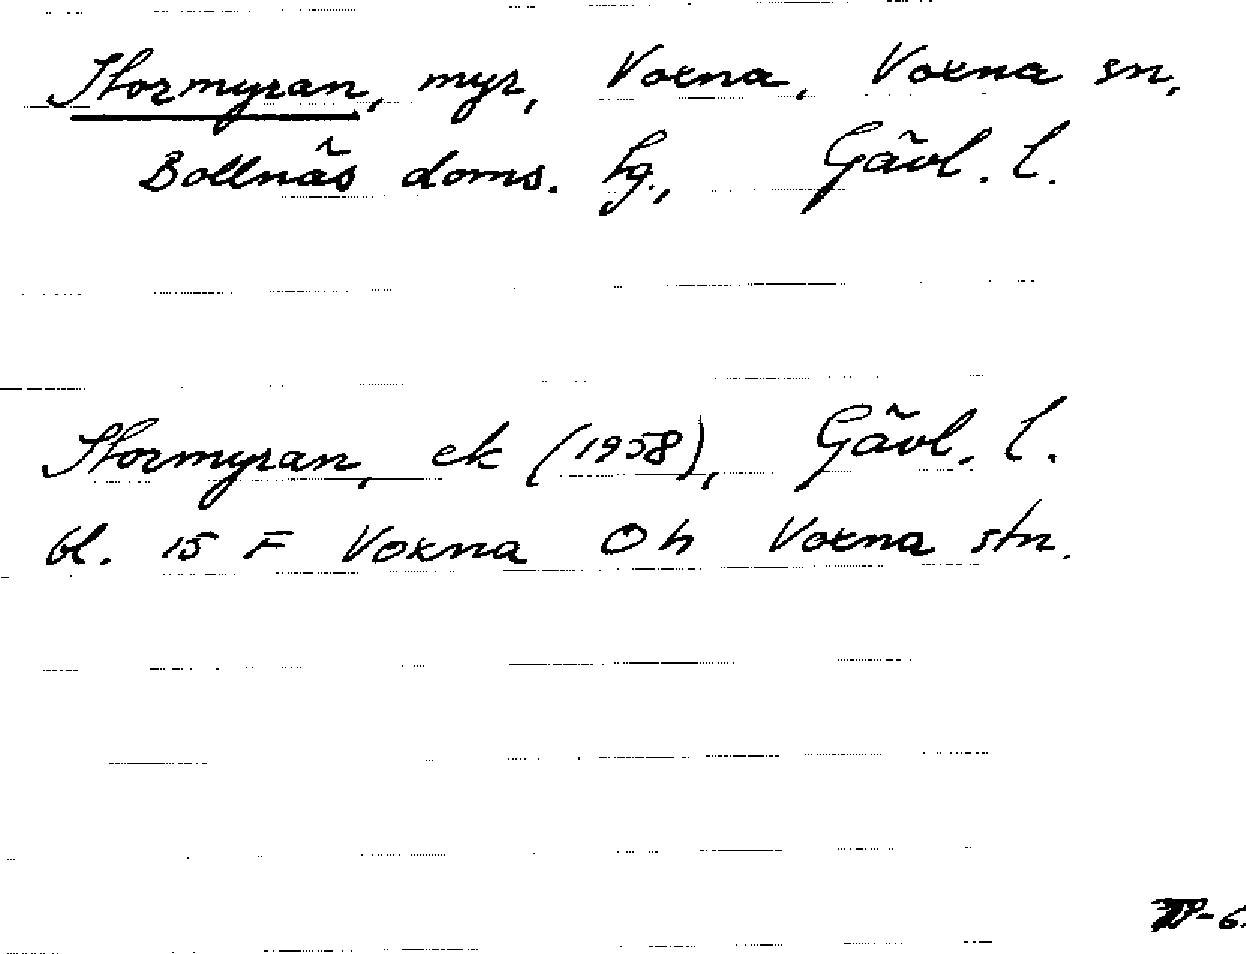 Stormyran, myr, Voxna, Voxna sn,
Bollnäs doms. hg., Gävl. l.
Stormyran, ek (1958), Gävl. l.
bl. 15 F Voxna Oh Voxna stn.